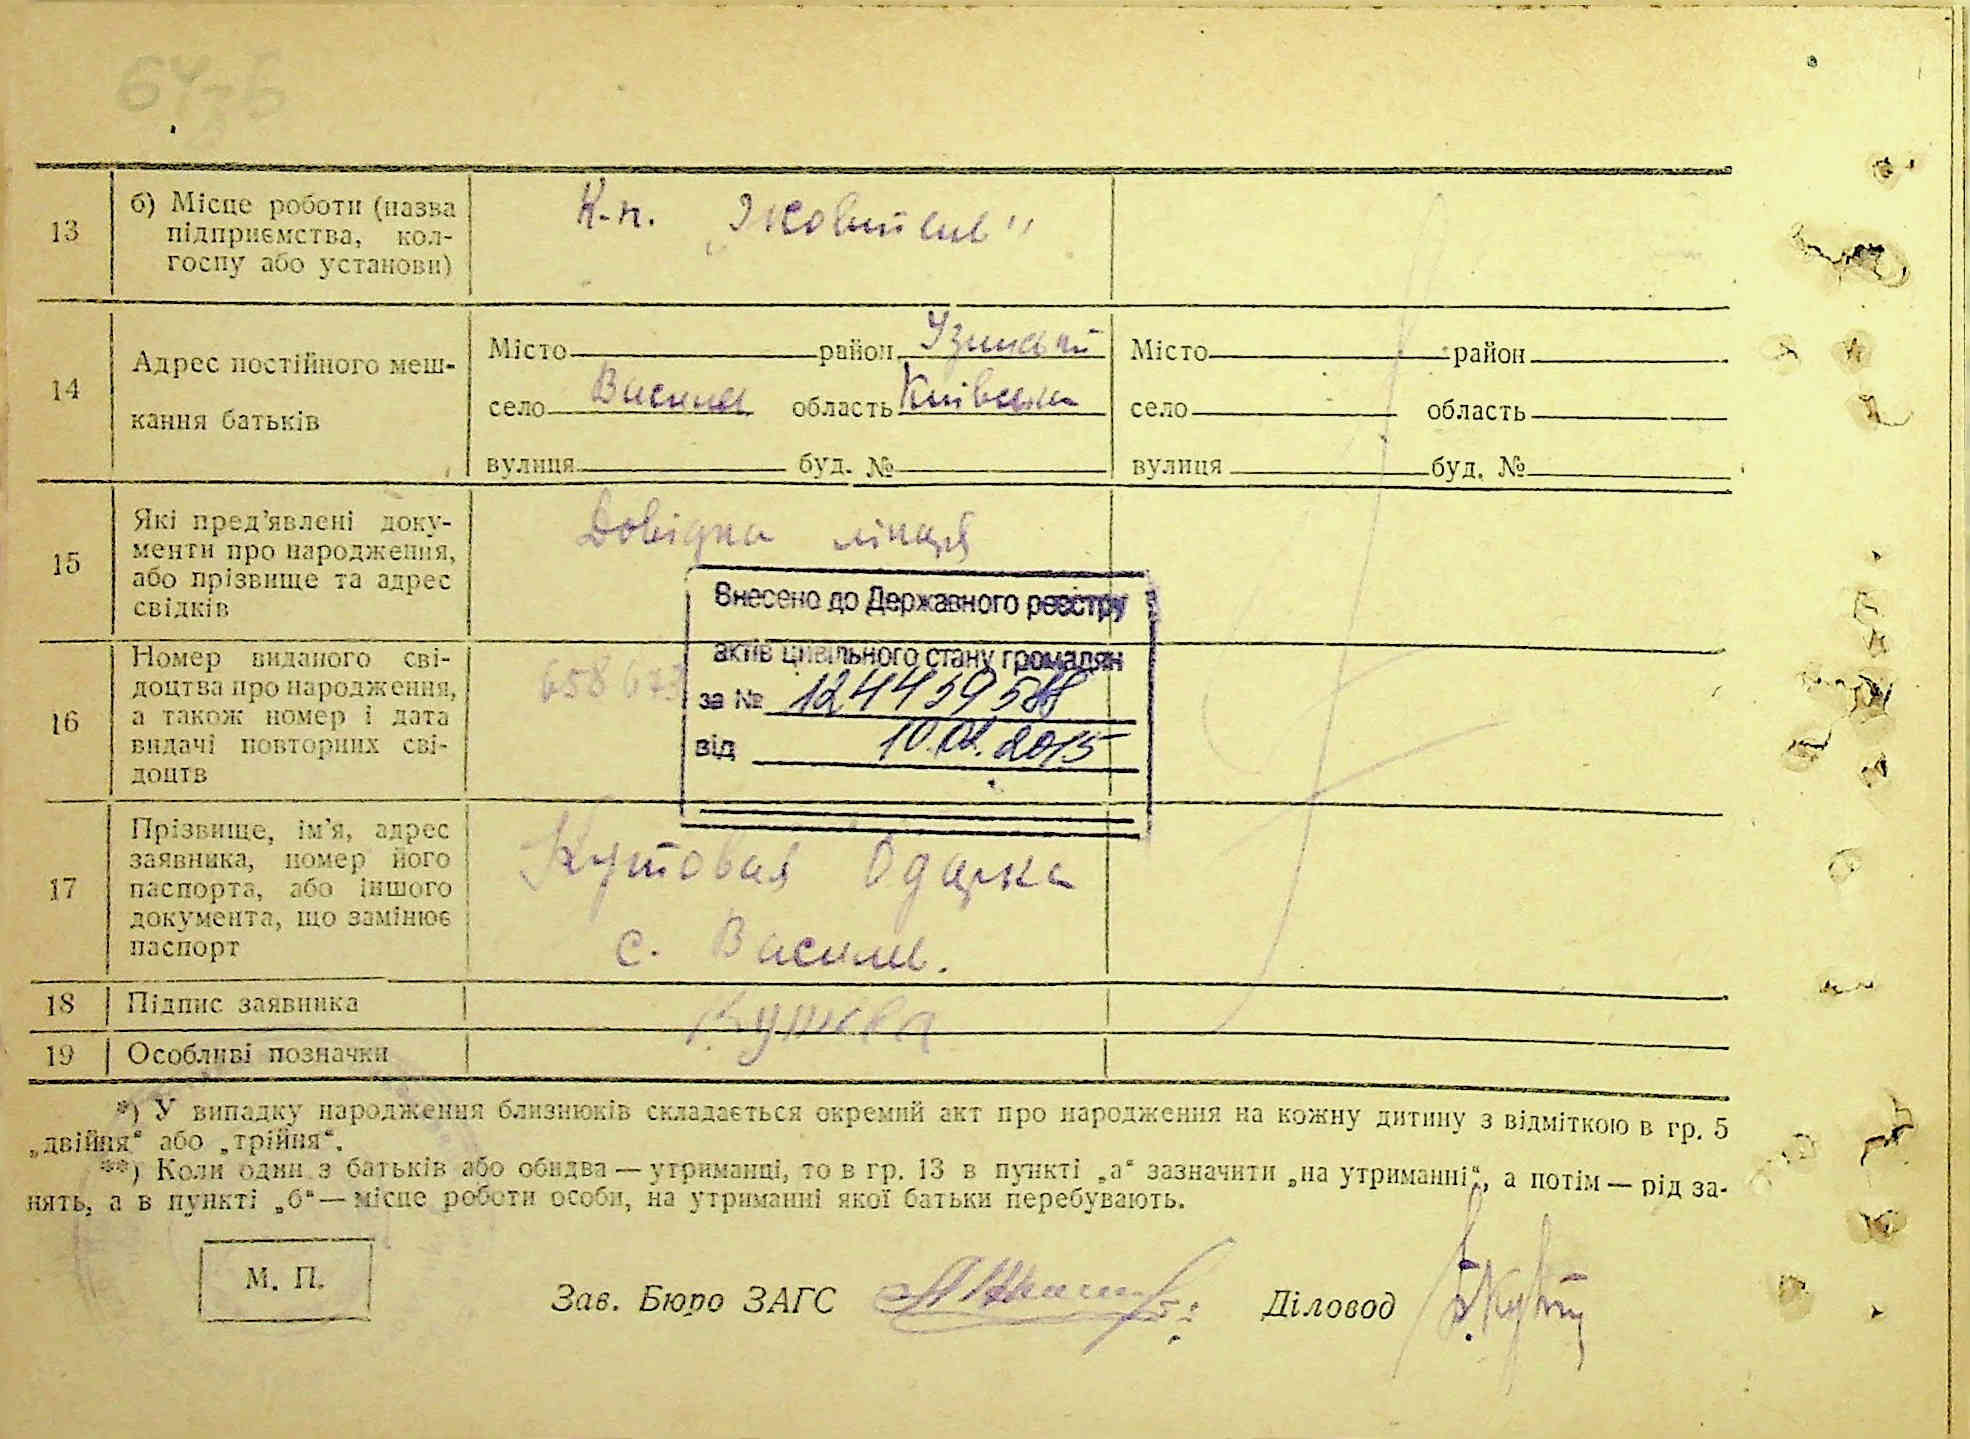 13
б) Місце роботи (назва
підприємства, кол-
госпу або установи)
К-п. „Жовтень"
14
Адрес постійного меш-
кання батьків
Місто район Узинський
село Василів область Київська
вулиця буд. №
Місто район
село область
вулиця буд. №
15
Які пред'явлені доку-
менти про народження,
або прізвище та адрес
свідків
Довідка лікаря
16
Номер виданого сві-
доцтва про народження,
а також номер і дата
видачі повторних сві-
доцтв
658673
Внесено до Державного реєстру
актів цивільного стану громадян
за № 1244
від 2015
17
Прізвище, ім'я, адрес
заявника, номер його
паспорта, або іншого
документа, що замінює
паспорт
Кутовая Одарка
с. Василів.
18
Підпис заявника
19
Особливі позначки
*) У випадку народження близнюків складається окремий акт про народження на кожну дитину з відміткою в гр. 5
„двійня“ або „трійня“.
**) Коли один з батьків або обидва — утриманці, то в гр. 13 в пункті „а“ зазначити „на утриманні“, а потім — рід за-
нять, а в пункті „б“ — місце роботи особи, на утриманні якої батьки перебувають.
М. П.
Зав. Бюро ЗАГС
Діловод